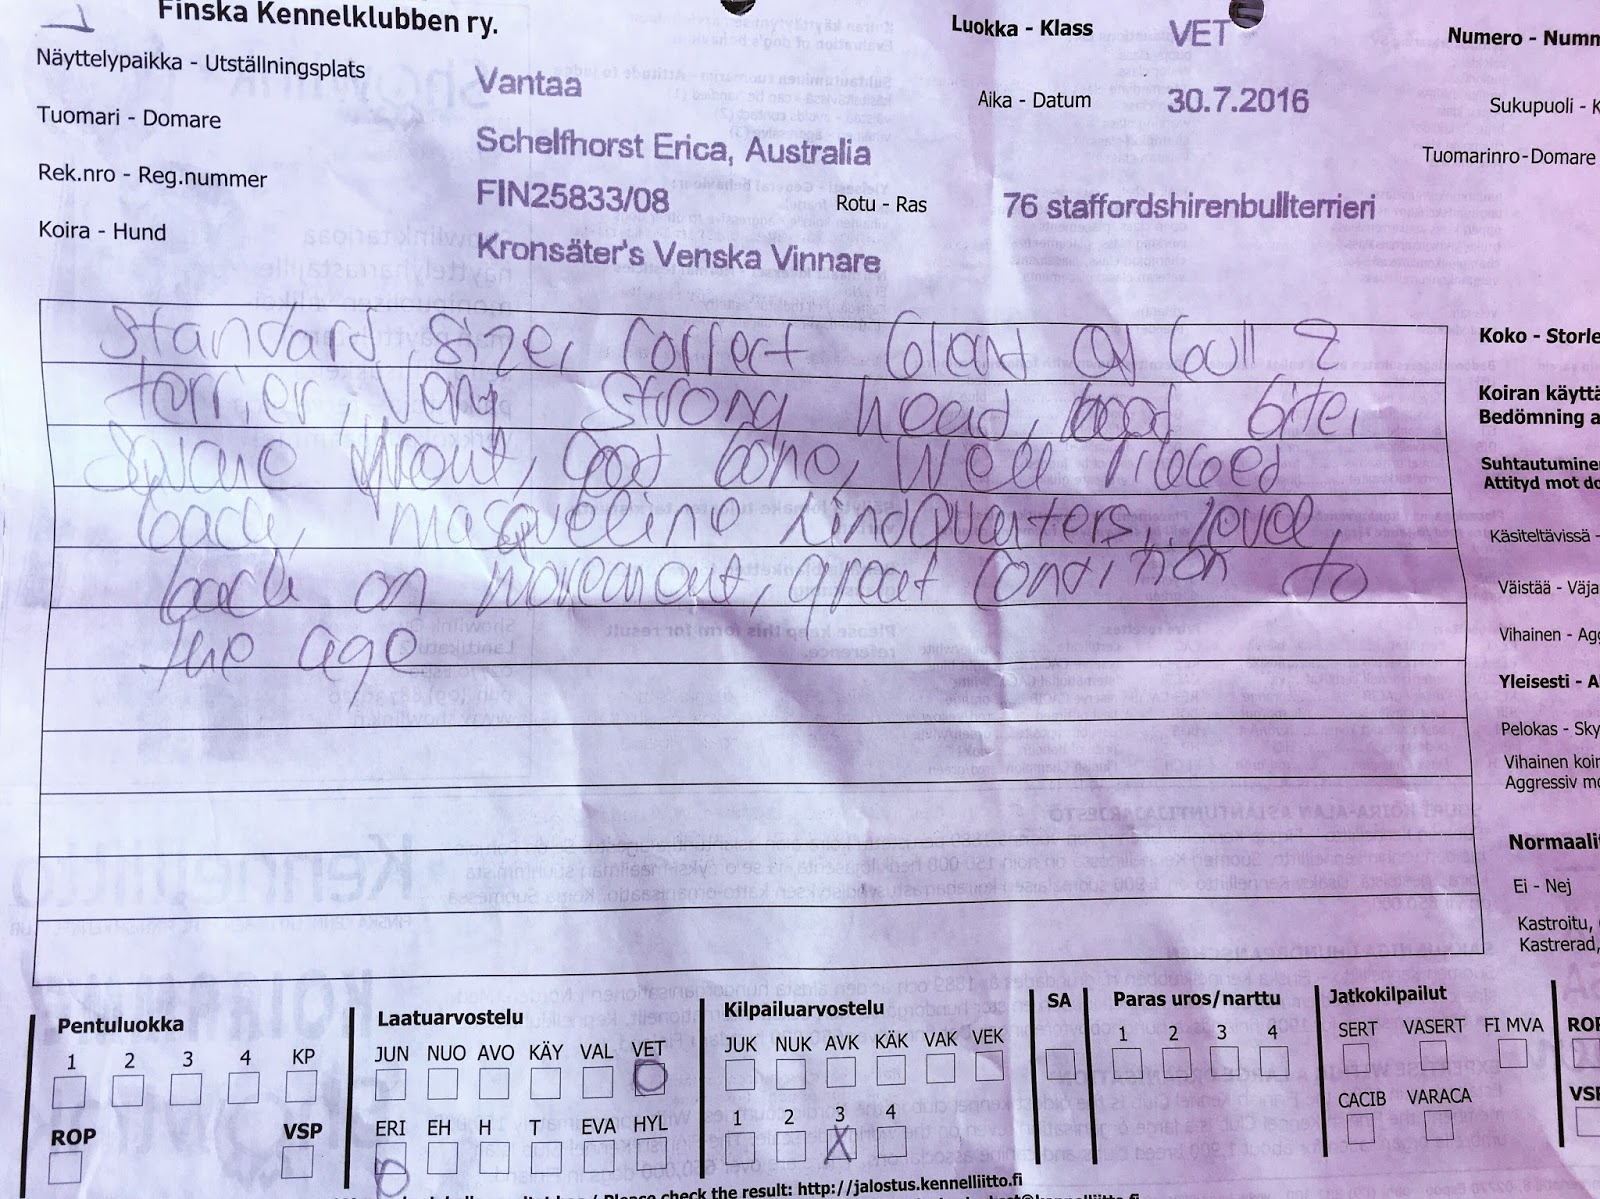 Finska Kennelklubben ry.
Luokka - Klass VET Numero - Numm
Näyttelypaikka - Utställningsplats Vantaa
Aika - Datum 30.7.2016 Sukupuoli - K
Tuomari - Domare Schelfhorst Erica, Australia
Tuomarinro - Domare
Rek.nro - Reg.nummer FIN25833/08 Rotu - Ras 76 staffordshirenbullterrieri
Koira - Hund Kronsäter's Venska Vinnare
Standard size, correct blend of bull &
terrier, very strong head, good bite,
good bone, well ribbed
back, masqueline hindquarters, level
back on movement, great condition to
the age
Koko - Storle
Koiran käyttä
Bedömning a
Suhtautumine
Attityd mot do
Käsiteltävissä -
Väistää - Väja
Vihainen - Agg
Yleisesti - A
Pelokas - Sky
Vihainen koir
Aggressiv mo
Normaalit
Ei - Nej
Kastroitu,
Kastrerad,
Pentuluokka
1 2 3 4 KP
ROP VSP
Laatuarvostelu
JUN NUO AVO KÄY VAL VET
ERI EH H T EVA HYL
Kilpailuarvostelu
JUK NUK AVK KÄK VAK VEK
1 2 3 4
SA
Paras uros/narttu
1 2 3 4
Jatkokilpailut
SERT VASERT FI MVA
CACIB VARACA
ROP
VSP
/ Please check the result: http://jalostus.kennelliitto.fi